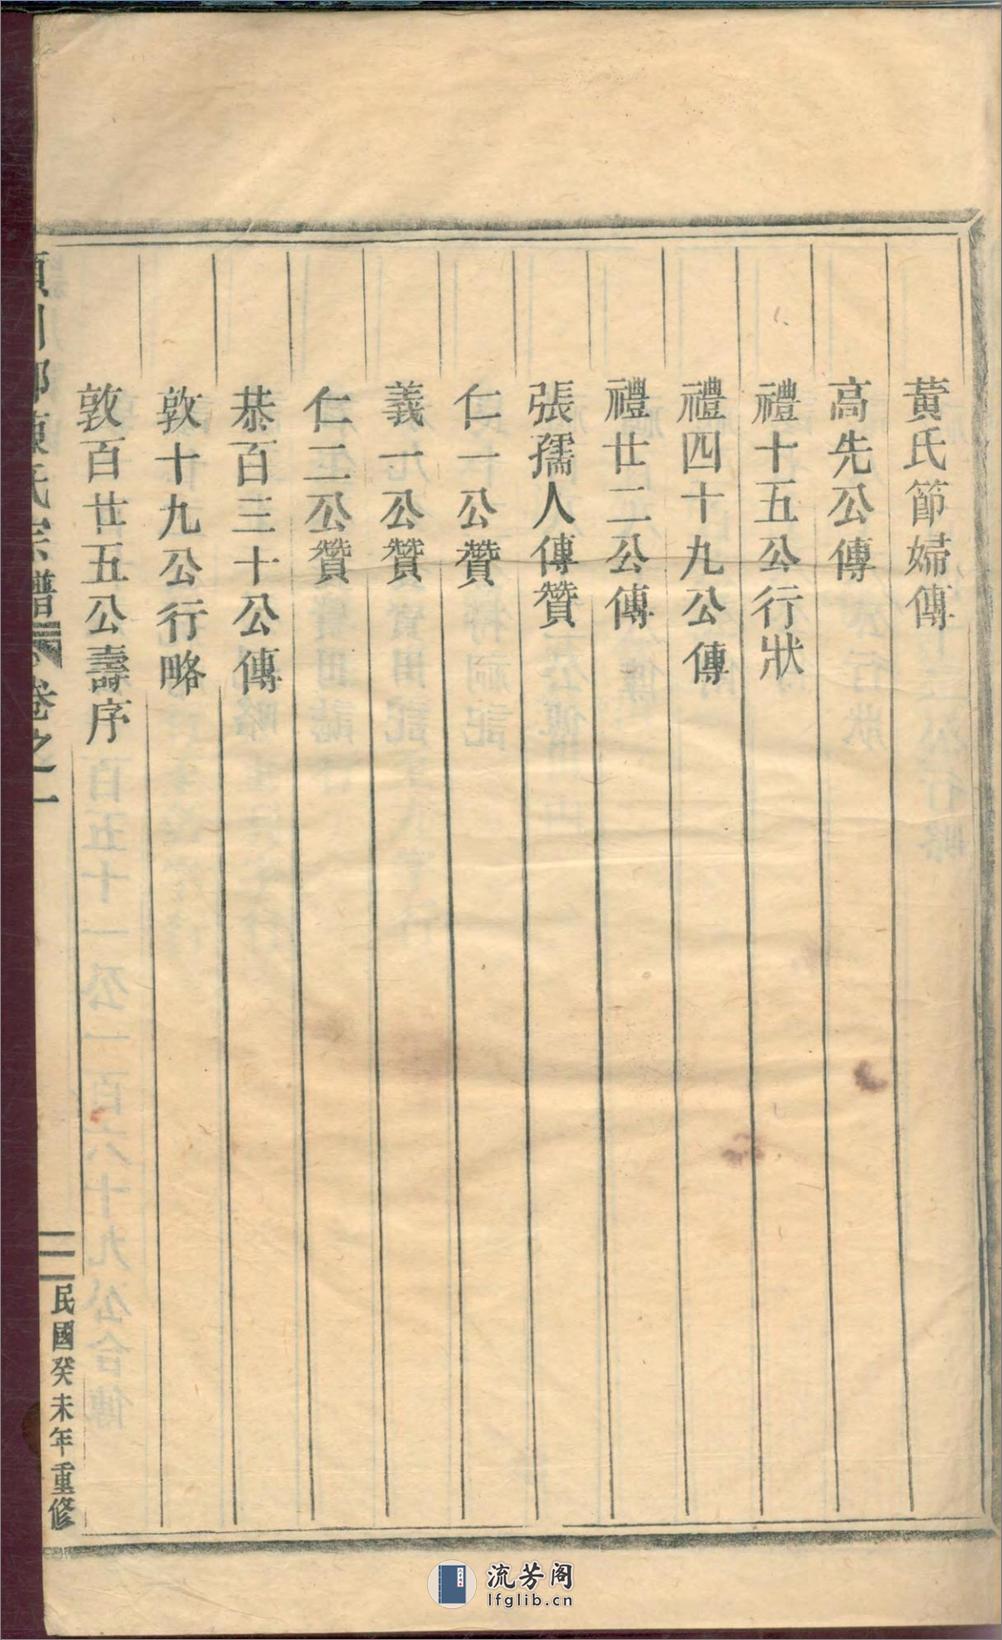 黃氏節婦傳
高先公傳
禮十五公行狀
禮四十九公傳
禮廿二公傳
張孺人傳贊
仁一公贊
義一公贊
仁二公贊
恭百三十公傳
敦十九公行略
敦百廿五公壽序
川 陳氏宗譜 卷之一
二 民國癸未年重修
流芳阁
lfglib.cn